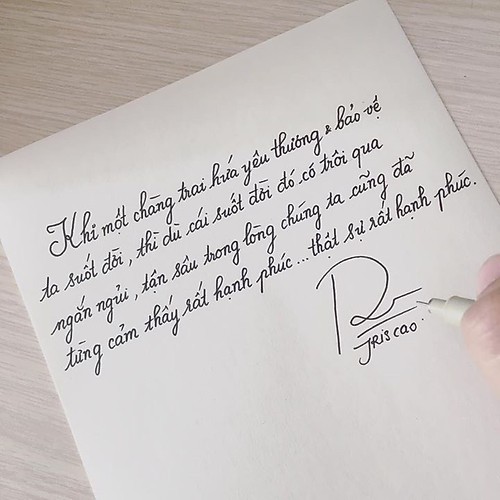 Khi một chàng trai hứa yêu thương & bảo vệ
ta suốt đời, thì dù cái suốt đời đó có trôi qua
ngắn ngủi, tân sâu trong lòng chúng ta cũng đã
từng cảm thấy rất hạnh phúc... thật sự rất hạnh phúc.
JRIS CAO.